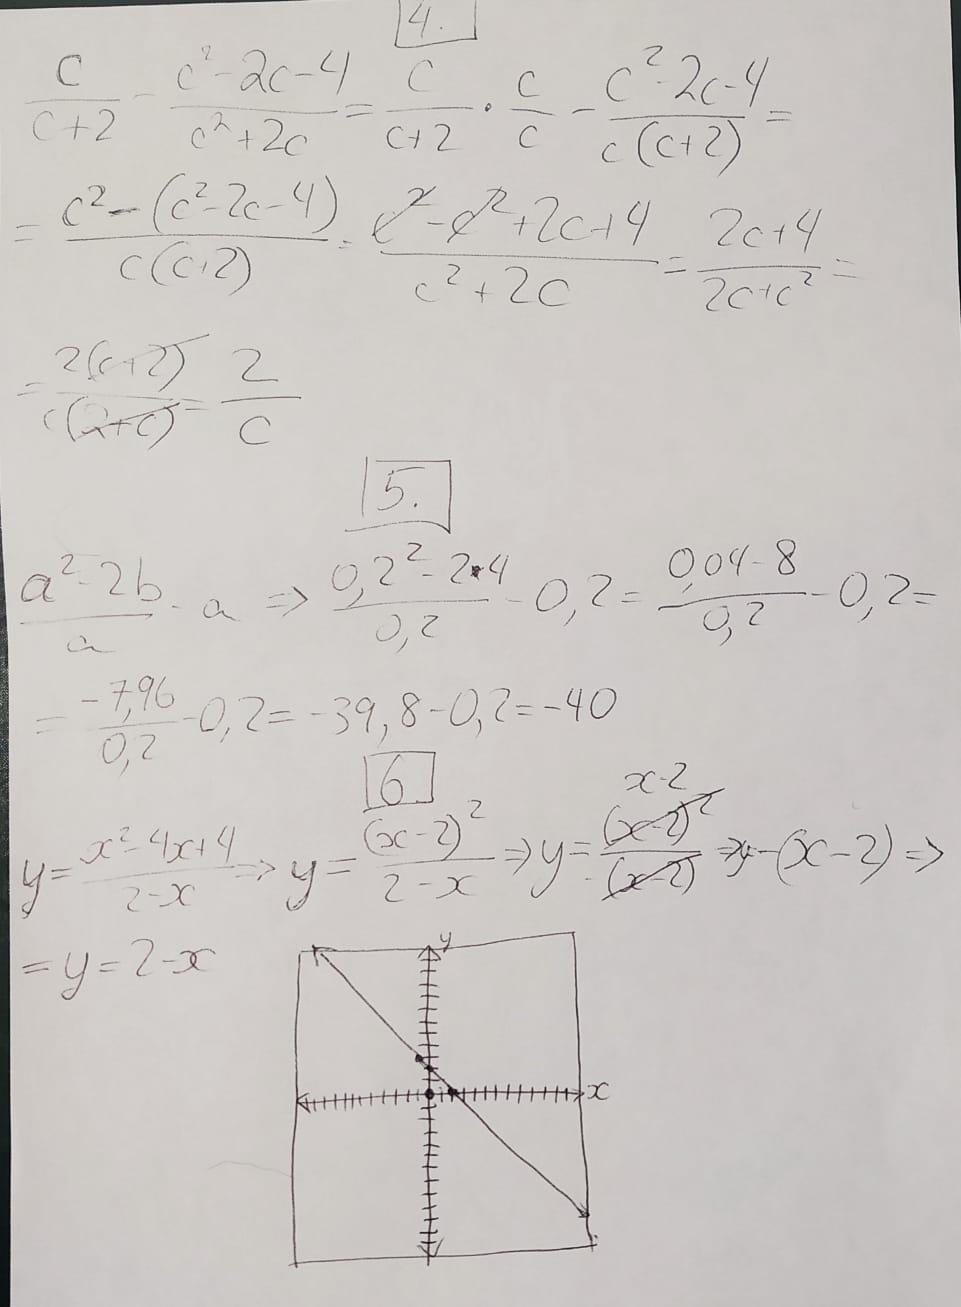 4.
c/(c+2) - (c²-2c-4)/(c²+2c) = c/(c+2) · c/c - (c²-2c-4)/(c(c+2)) =
= (c²-(c²-2c-4))/(c(c+2)) = (c²-c²+2c+4)/(c²+2c) = (2c+4)/(2c+c²) =
= 2(c+2)/(c(2+c)) = 2/c
5.
(a²-2b)/a - a => (0,2²-2·4)/0,2 - 0,2 = (0,04-8)/0,2 - 0,2 =
= -7,96/0,2 - 0,2 = -39,8-0,2 = -40
6
x-2
y = (x²-4x+4)/(2-x) => y = (x-2)²/(2-x) => y = (x-2)²/-(x-2) => y -(x-2) =>
= y = 2-x
y
x